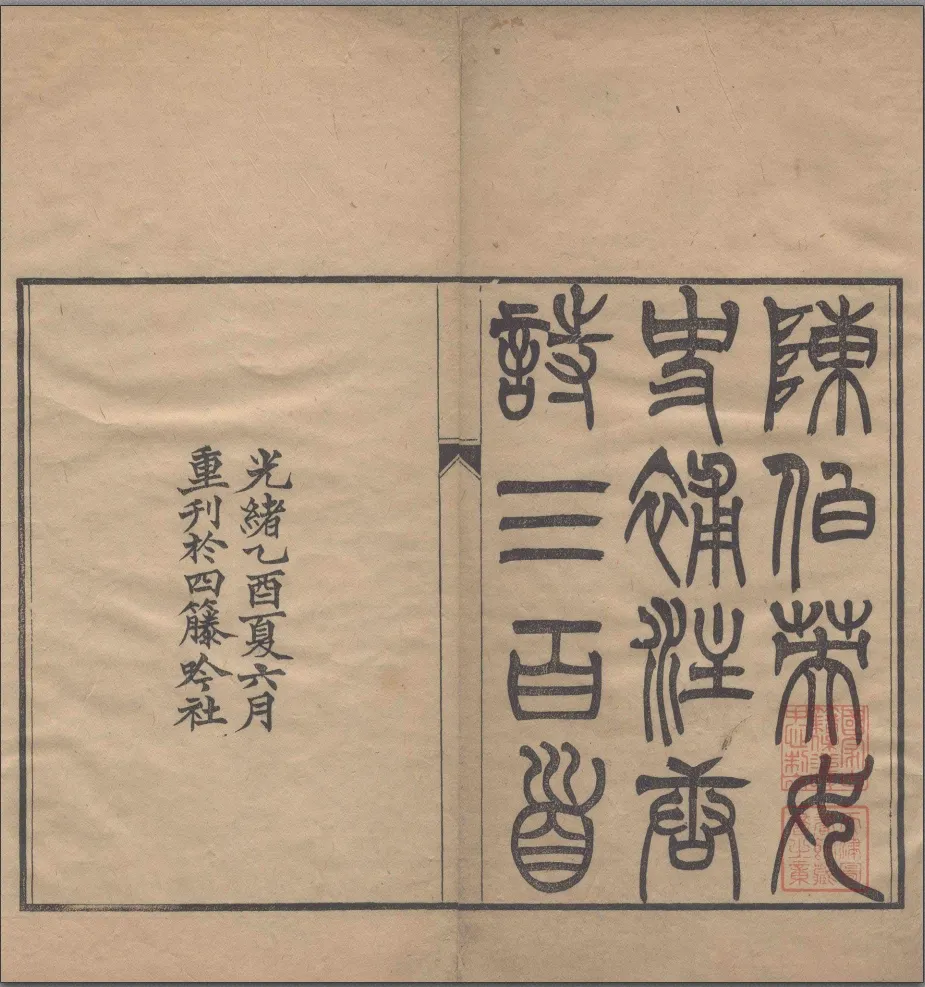 陳伯英女
史補注唐
詩三百首
光緒乙酉夏六月
重刊於四籐吟社